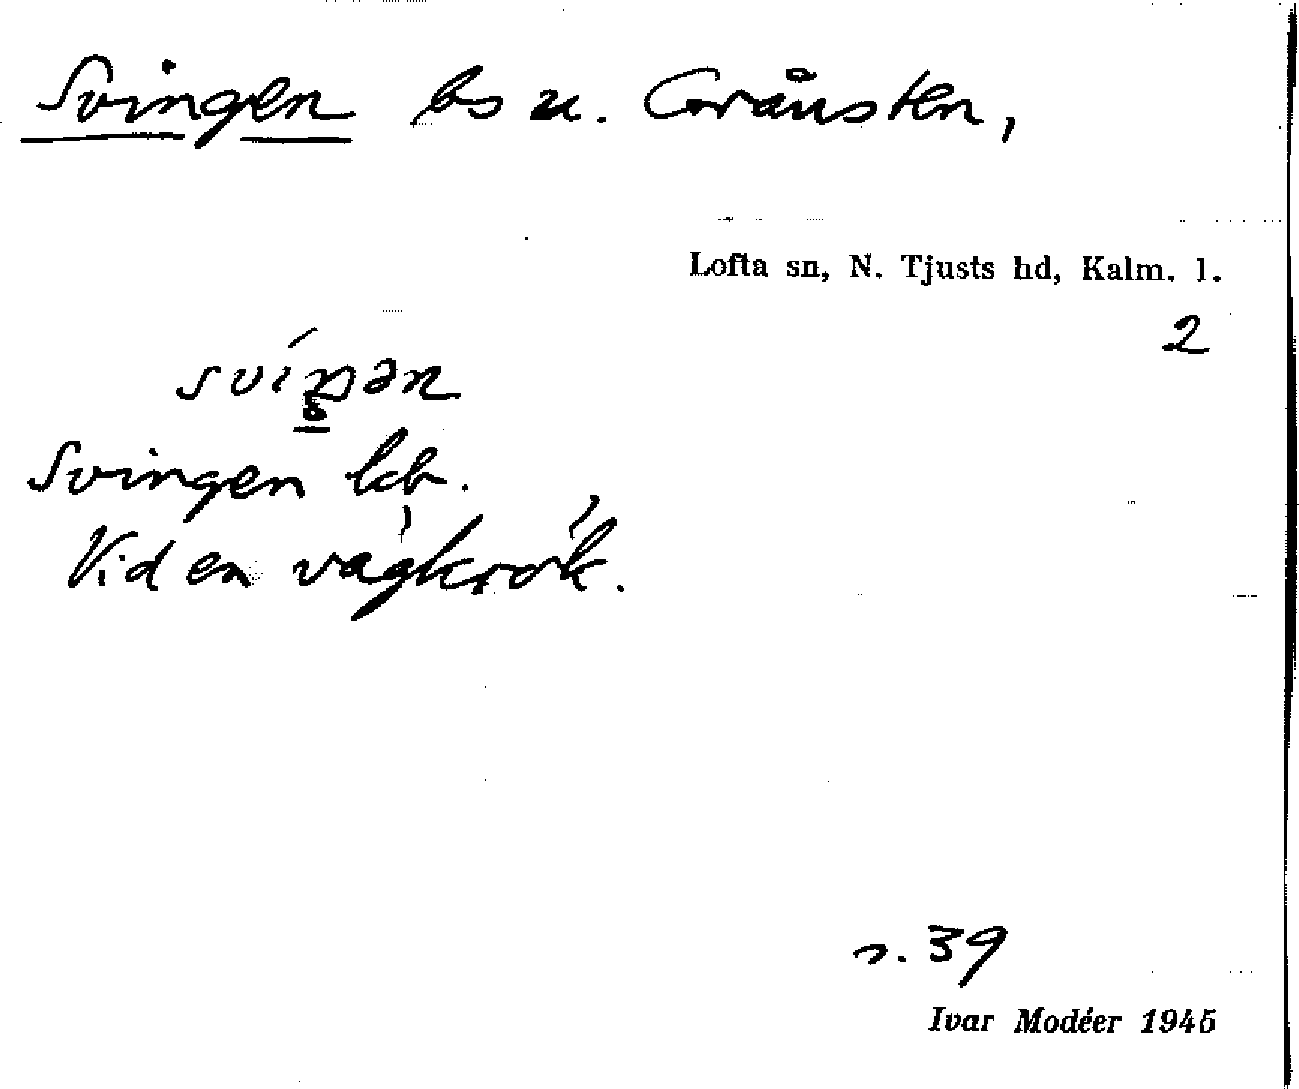 Svingen bs u. Gränsten,
Lofta sn, N. Tjusts hd, Kalm. l.
2
Svingen lcb.
Vid en vägkrök.
s. 39
Ivar Modéer 1945